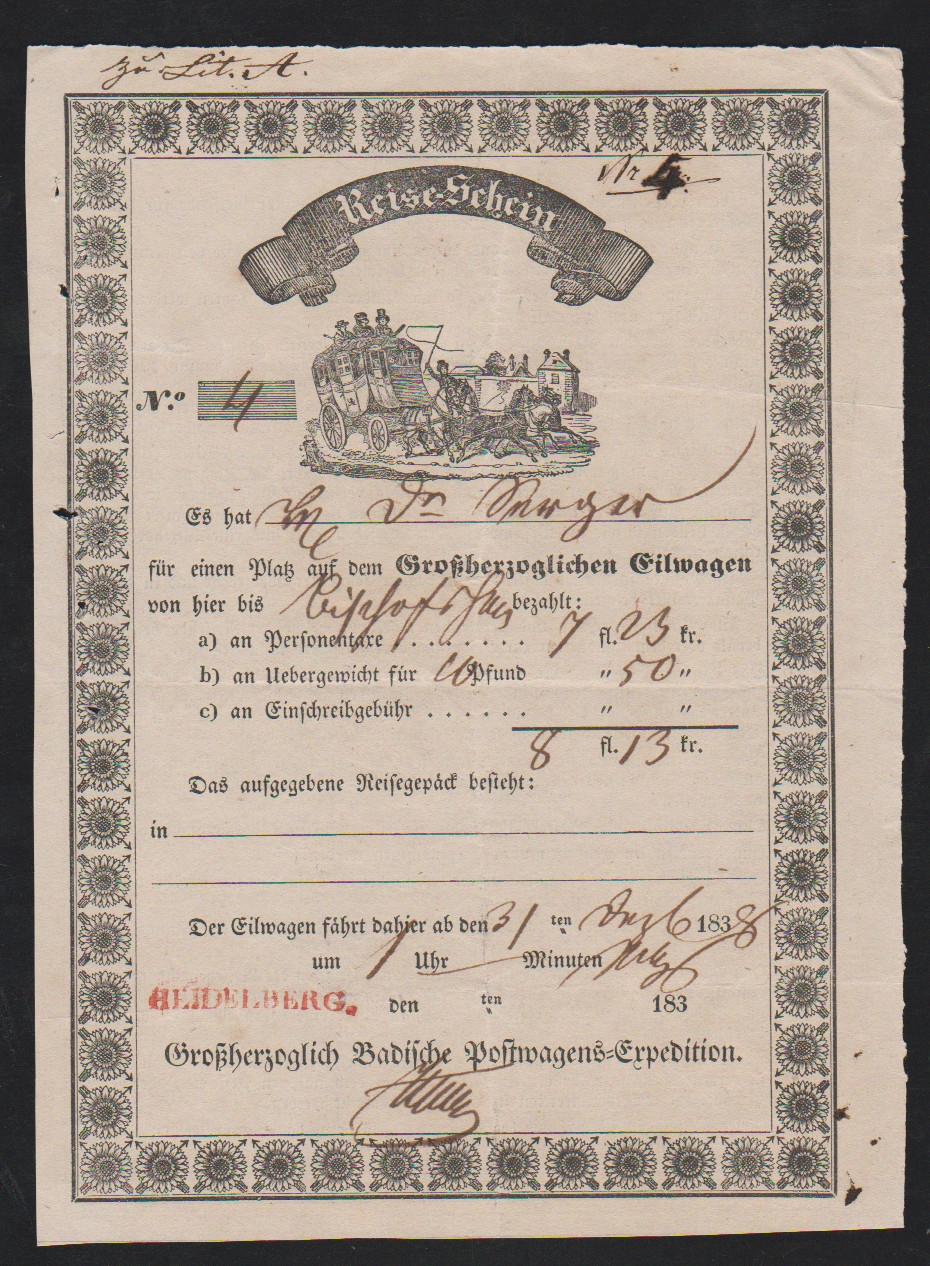 zu Lit. A.
Nr 4.
Reise-Schein
N.º 4
Es hat Dr Serger
für einen Platz auf dem Großherzoglichen Eilwagen
von hier bis bezahlt:
a) an Personentaxe . . . . . . . . 7 fl. 23 kr.
b) an Uebergewicht für Pfund " 50 "
c) an Einschreibgebühr . . . . . . " "
8 fl. 13 kr.
Das aufgegebene Reisegepäck besteht:
in
Der Eilwagen fährt dahier ab den 31 ten Dezb 1838
um 1 Uhr Minuten
HEIDELBERG. den ten 183
Großherzoglich Badische Postwagens-Expedition.